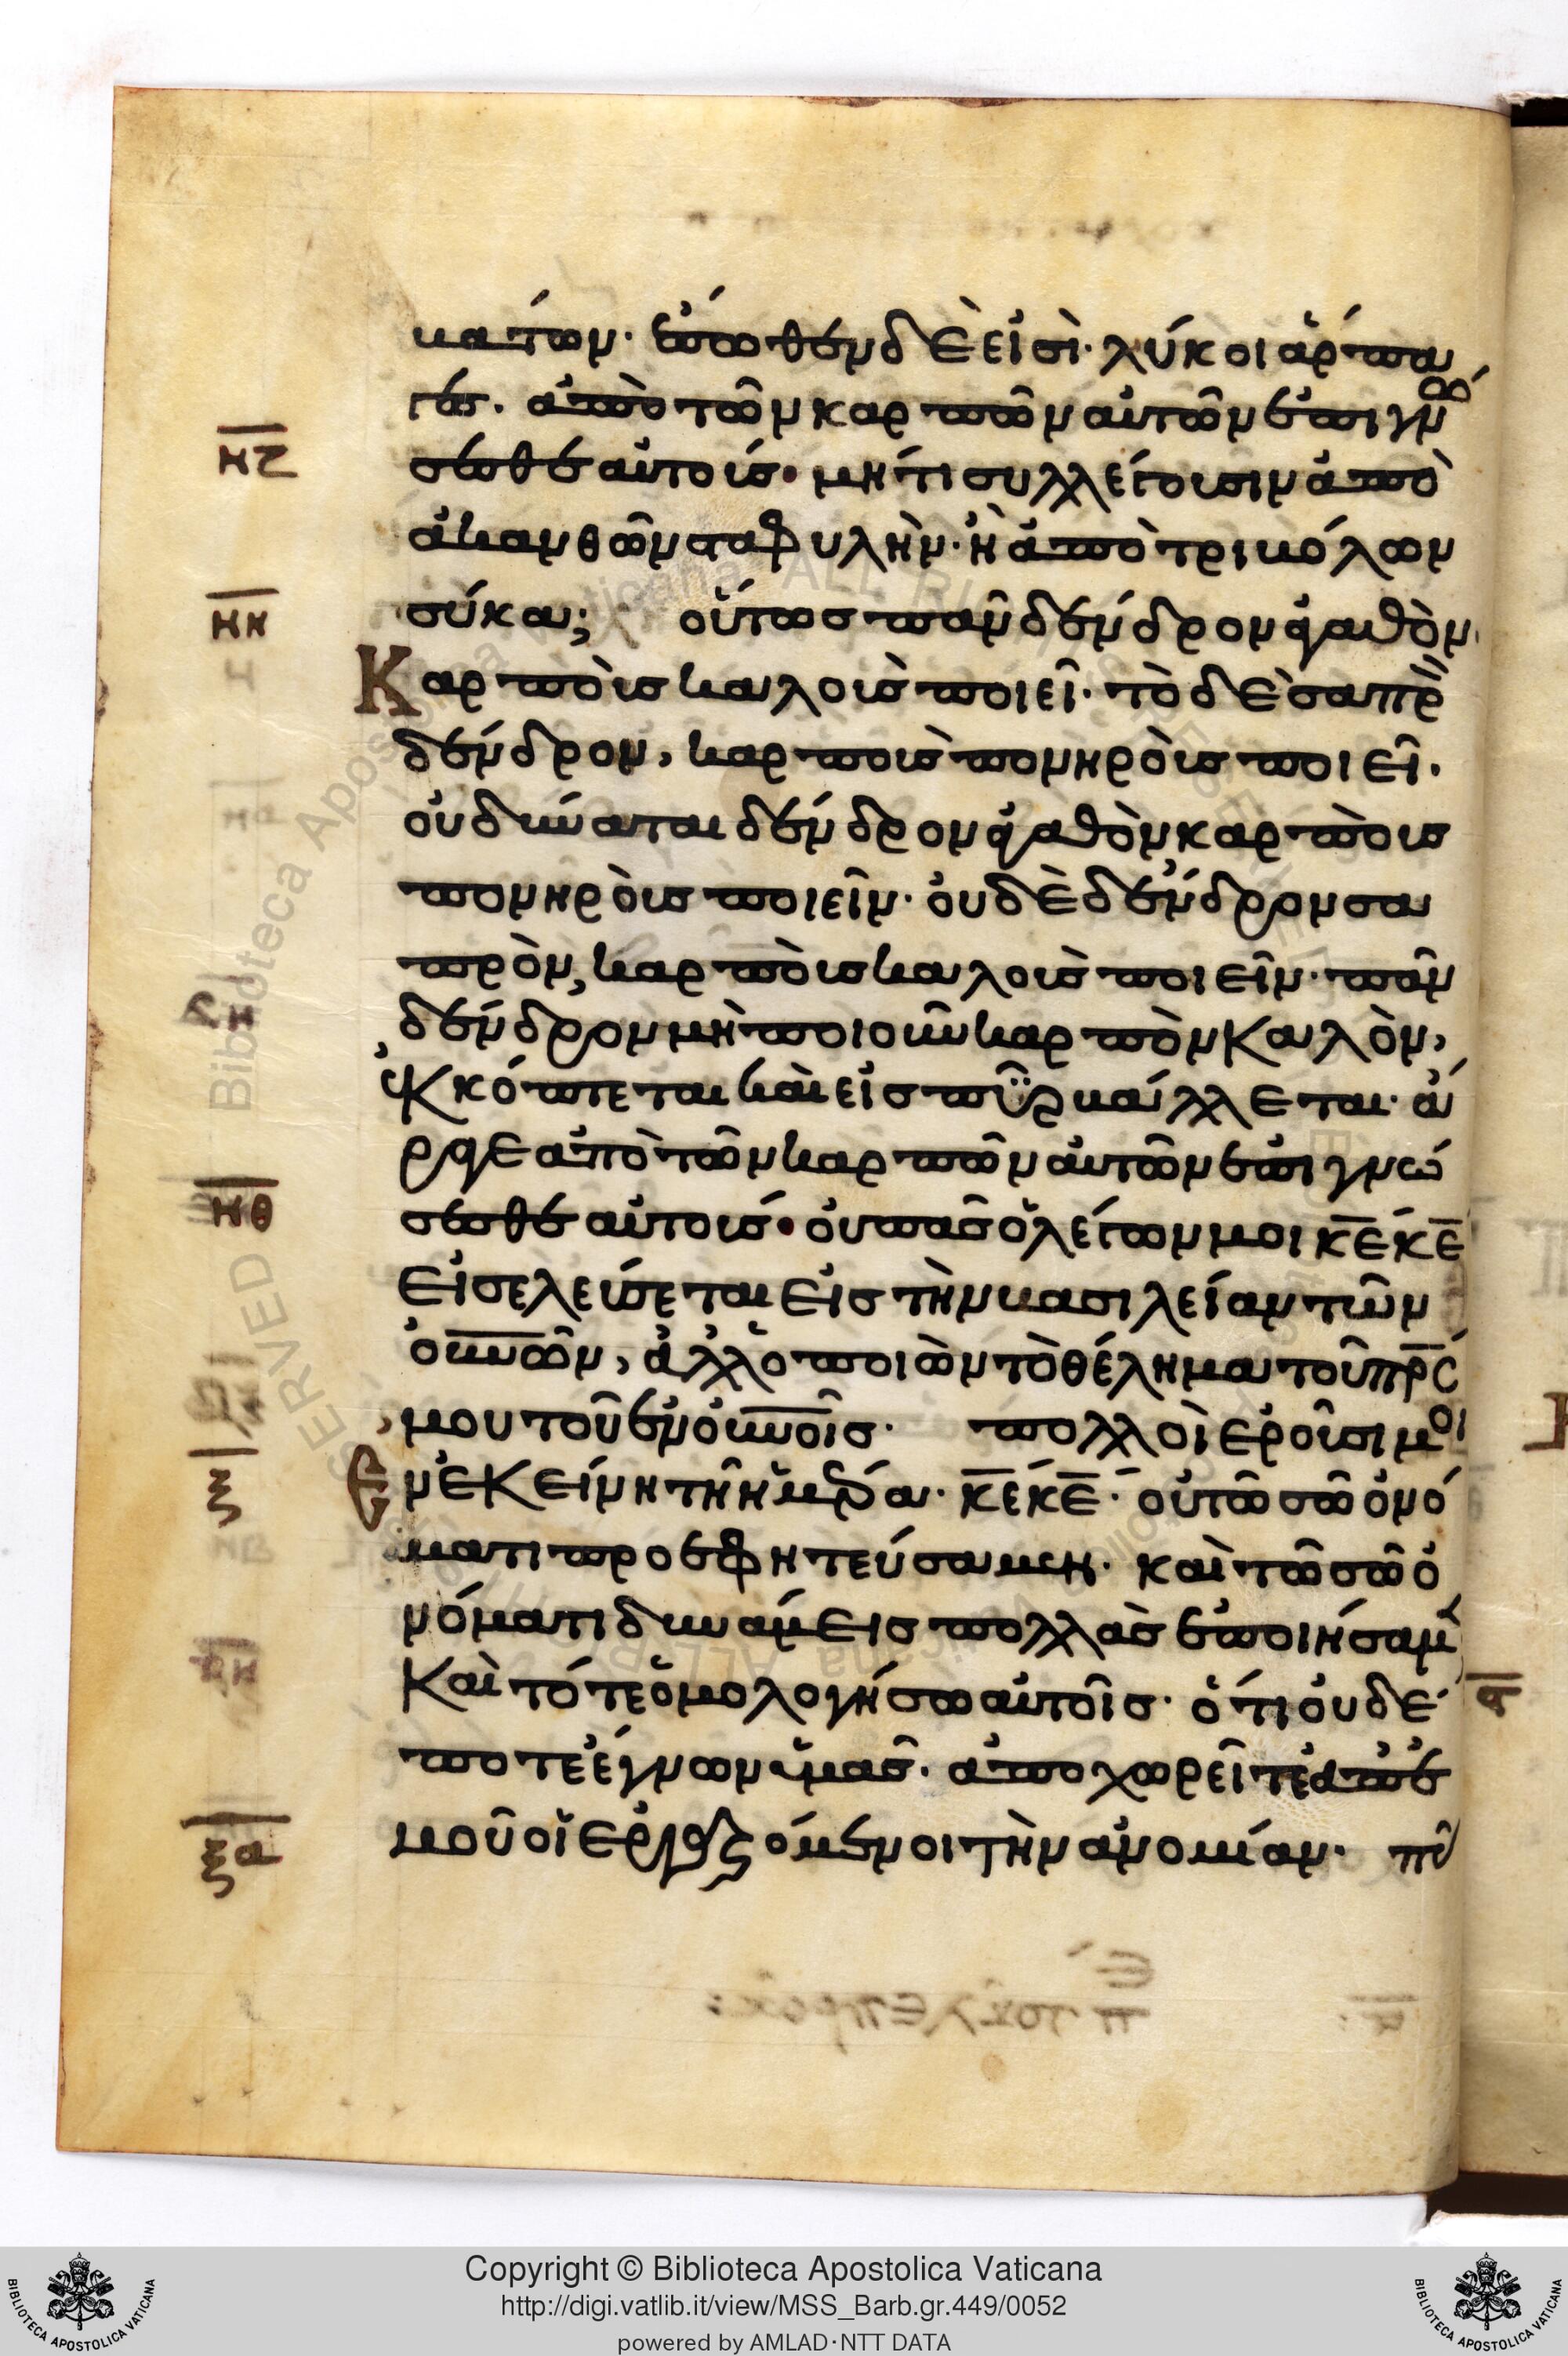 βάτων· ἔσωθεν δὲ εἰσὶ· λύκοι ἅρπα
γες. ἀπὸ τῶν καρπῶν αὐτῶν ἐπιγνώ
σεσθε αὐτούς· μήτι συλλέγουσιν ἀπὸ
ἀκανθῶν σταφυλὴν· ἢ ἀπὸ τριβόλων
σύκα; οὕτως πᾶν δένδρον ἀγαθὸν
Καρποὺς καλοὺς ποιεῖ· τὸ δὲ σαπρὸ
δένδρον, καρποὺς πονηροὺς ποιεῖ.
οὐ δύναται δένδρον ἀγαθὸν καρποὺς
πονηροὺς ποιεῖν· οὐδὲ δένδρον σα
πρὸν, καρποὺς καλοὺς ποιεῖν· πᾶν
δένδρον μὴ ποιοῦν καρπὸν καλὸν,
ἐκκόπτεται καὶ εἰς πῦρ βάλλεται· ἄ
ραγε ἀπὸ τῶν καρπῶν αὐτῶν ἐπιγνώ
σεσθε αὐτούς· οὐ πᾶς ὁ λέγων μοι κ̅ε̅ κ̅ε̅
εἰσελεύσεται εἰς τὴν βασιλείαν τῶν
ο̅υ̅ν̅ῶν, ἀλλ' ὁ ποιῶν τὸ θέλημα τοῦ π̅ρ̅ς̅
μου τοῦ ἐν ο̅υ̅ν̅οῖς· πολλοὶ ἐροῦσι μοι
Ἐν ἐκείνη τῆ ἡμέρα· κ̅ε̅ κ̅ε̅· οὐ τῶ σῶ ὀνό
ματι προεφητεύσαμεν· καὶ τῶ σῶ ὀ
νόματι δυνάμεις πολλὰς ἐποιήσαμεν
Καὶ τότε ὁμολογήσω αὐτοῖς· ὅτι οὐδέ
ποτε ἔγνων ὑμᾶς· ἀποχωρεῖτε ἀπ' ἐ
μοῦ οἱ ἐργαζόμενοι τὴν ἀνομίαν· πᾶ
νζ
νη
νθ
ξ
ξα
Copyright © Biblioteca Apostolica Vaticana
http://digi.vatlib.it/view/MSS_Barb.gr.449/0052
powered by AMLAD·NTT DATA